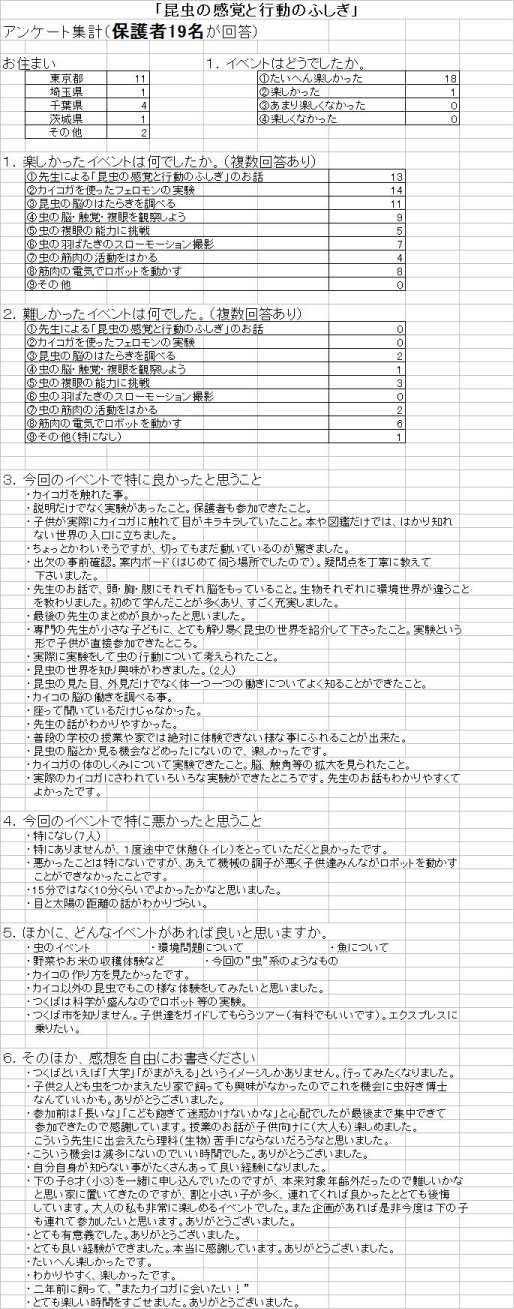 「昆虫の感覚と行動のふしぎ」
アンケート集計（保護者19名が回答）
お住まい
東京都 11
埼玉県 1
千葉県 4
茨城県 1
その他 2
１．イベントはどうでしたか。
①たいへん楽しかった 18
②楽しかった 1
③あまり楽しくなかった 0
④楽しくなかった 0
１．楽しかったイベントは何でしたか。（複数回答あり）
①先生による「昆虫の感覚と行動のふしぎ」のお話 13
②カイコガを使ったフェロモンの実験 14
③昆虫の脳のはたらきを調べる 11
④虫の脳・触覚・複眼を観察しよう 9
⑤虫の複眼の能力に挑戦 5
⑥虫の羽ばたきのスローモーション撮影 7
⑦虫の筋肉の活動をはかる 4
⑧筋肉の電気でロボットを動かす 8
⑨その他 0
２．難しかったイベントは何でした。（複数回答あり）
①先生による「昆虫の感覚と行動のふしぎ」のお話 0
②カイコガを使ったフェロモンの実験 0
③昆虫の脳のはたらきを調べる 2
④虫の脳・触覚・複眼を観察しよう 1
⑤虫の複眼の能力に挑戦 3
⑥虫の羽ばたきのスローモーション撮影 0
⑦虫の筋肉の活動をはかる 2
⑧筋肉の電気でロボットを動かす 6
⑨その他（特になし） 1
３．今回のイベントで特に良かったと思うこと
・カイコガを触れた事。
・説明だけでなく実験があったこと。保護者も参加できたこと。
・子供が実際にカイコガに触れて目がキラキラしていたこと。本や図鑑だけでは、はかり知れ
ない世界の入口に立ちました。
・ちょっとかわいそうですが、切ってもまだ動いているのが驚きました。
・出欠の事前確認。案内ボード（はじめて伺う場所でしたので）。疑問点を丁寧に教えて
下さいました。
・先生のお話で、頭・胸・腹にそれぞれ脳をもっていること。生物それぞれに環境世界が違うこと
を教わりました。初めて学んだことが多くあり、すごく充実しました。
・最後の先生のまとめが良かったと思いました。
・専門の先生が小さな子どもに、とても解り易く昆虫の世界を紹介して下さったこと。実験という
形で子供が直接参加できたところ。
・実際に実験をして虫の行動について考えられたこと。
・昆虫の世界を知り興味がわきました。（2人）
・昆虫の見た目、外見だけでなく体一つ一つの働きについてよく知ることができたこと。
・カイコの脳の働きを調べる事。
・座って聞いているだけじゃなかった。
・先生の話がわかりやすかった。
・普段の学校の授業や家では絶対に体験できない様な事にふれることが出来た。
・昆虫の脳とか見る機会などめったにないので、楽しかったです。
・カイコガの体のしくみについて実験できたこと。脳、触角等の拡大を見られたこと。
・実際のカイコガにさわれていろいろな実験ができたところです。先生のお話もわかりやすくて
よかったです。
４．今回のイベントで特に悪かったと思うこと
・特になし（7人）
・特にありませんが、１度途中で休憩（トイレ）をとっていただくと良かったです。
・悪かったことは特にないですが、あえて機械の調子が悪く子供達みんながロボットを動かす
ことができなかったことです。
・15分ではなく10分くらいでよかったかなと思いました。
・目と太陽の距離の話がわかりづらい。
５．ほかに、どんなイベントがあれば良いと思いますか。
・虫のイベント ・環境問題について ・魚について
・野菜やお米の収穫体験など ・今回の”虫”系のようなもの
・カイコの作り方を見たかったです。
・カイコ以外の昆虫でもこの様な体験をしてみたいと思いました。
・つくばは科学が盛んなのでロボット等の実験。
・つくば市を知りません。子供達をガイドしてもらうツアー（有料でもいいです）。エクスプレスに
乗りたい。
６．そのほか、感想を自由にお書きください
・つくばといえば「大学」「がまがえる」というイメージしかありません。行ってみたくなりました。
・子供２人とも虫をつかまえたり家で飼っても興味がなかったのでこれを機会に虫好き博士
なんていいかも。ありがとうございました。
・参加前は「長いな」「こども飽きて迷惑かけないかな」と心配でしたが最後まで集中できて
参加できたので感謝しています。授業のお話が子供向けに（大人も）楽しめました。
こういう先生に出会えたら理科（生物）苦手にならないだろうなと思いました。
・こういう機会は滅多にないのでいい時間でした。ありがとうございました。
・自分自身が知らない事がたくさんあって良い経験になりました。
・下の子８才（小３）を一緒に申し込んでいたのですが、本来対象年齢外だったので難しいかな
と思い家に置いてきたのですが、割と小さい子が多く、連れてくれば良かったととても後悔
しています。大人の私も非常に楽しめるイベントでした。また企画があれば是非今度は下の子
も連れて参加したいと思います。ありがとうございました。
・とても有意義でした。ありがとうございました。
・とても良い経験ができました。本当に感謝しています。ありがとうございました。
・たいへん楽しかったです。
・わかりやすく、楽しかったです。
・二年前に飼って、”またカイコガに会いたい！”
・とても楽しい時間をすごせました。ありがとうございました。